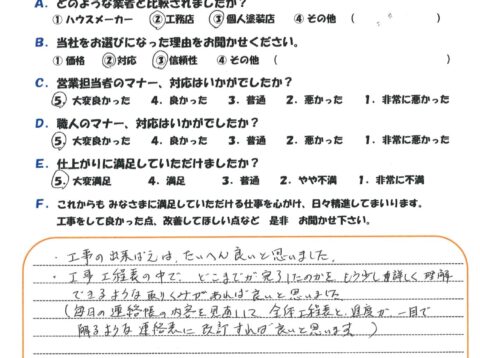 A. どのような業者と比較されましたか？
① ハウスメーカー ② 工務店 ③ 個人塗装店 ④ その他 ( )
B. 当社をお選びになった理由をお聞かせください。
① 価格 ② 対応 ③ 信頼性 ④ その他 ( )
C. 営業担当者のマナー、対応はいかがでしたか？
5. 大変良かった 4. 良かった 3. 普通 2. 悪かった 1. 非常に悪かった
D. 職人のマナー、対応はいかがでしたか？
5. 大変良かった 4. 良かった 3. 普通 2. 悪かった 1. 非常に悪かった
E. 仕上がりに満足していただけましたか？
5. 大変満足 4. 満足 3. 普通 2. やや不満 1. 非常に不満
F. これからも みなさまに満足していただける仕事を心がけ、日々精進してまいります。
工事をして良かった点、改善してほしい点など 是非 お聞かせ下さい。
・工事の出来ばえは、たいへん良いと思いました。
・工事工程表の中で、どこまでが完了したのかを、もう少し詳しく理解
できるような取りくみがあれば良いと思いました
(毎日の連絡帳の内容を見直して、全体工程表と、進度が一目で
解るような連絡表に改訂すれば良いと思います)